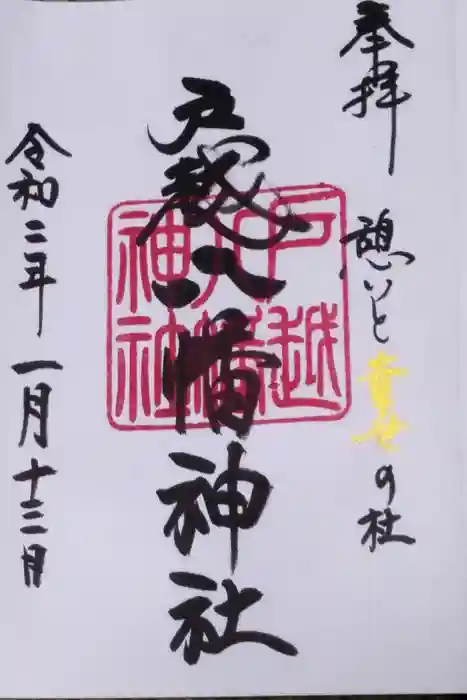 奉拝
憩いと幸せの杜
戸越八幡神社
戸越
八幡
神社
令和二年一月十三日